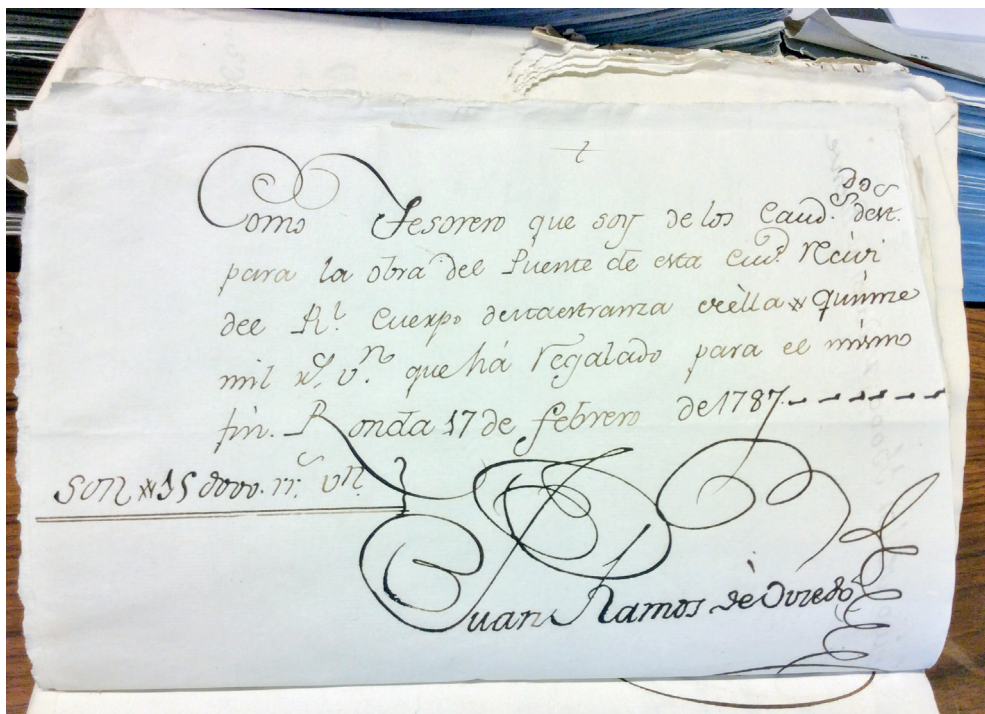 Como Tesorero que soy de los Caud.s dest.dos
para la obra del Puente de esta Ciud.d Recivi
del R.l Cuerpo de Maestranza de ella quinze
mil r.s v.n que há regalado para el mismo
fin. Ronda 17 de febrero de 1787.------
Son 15 000. rr.s vn.
Juan Ramos de Oviedo